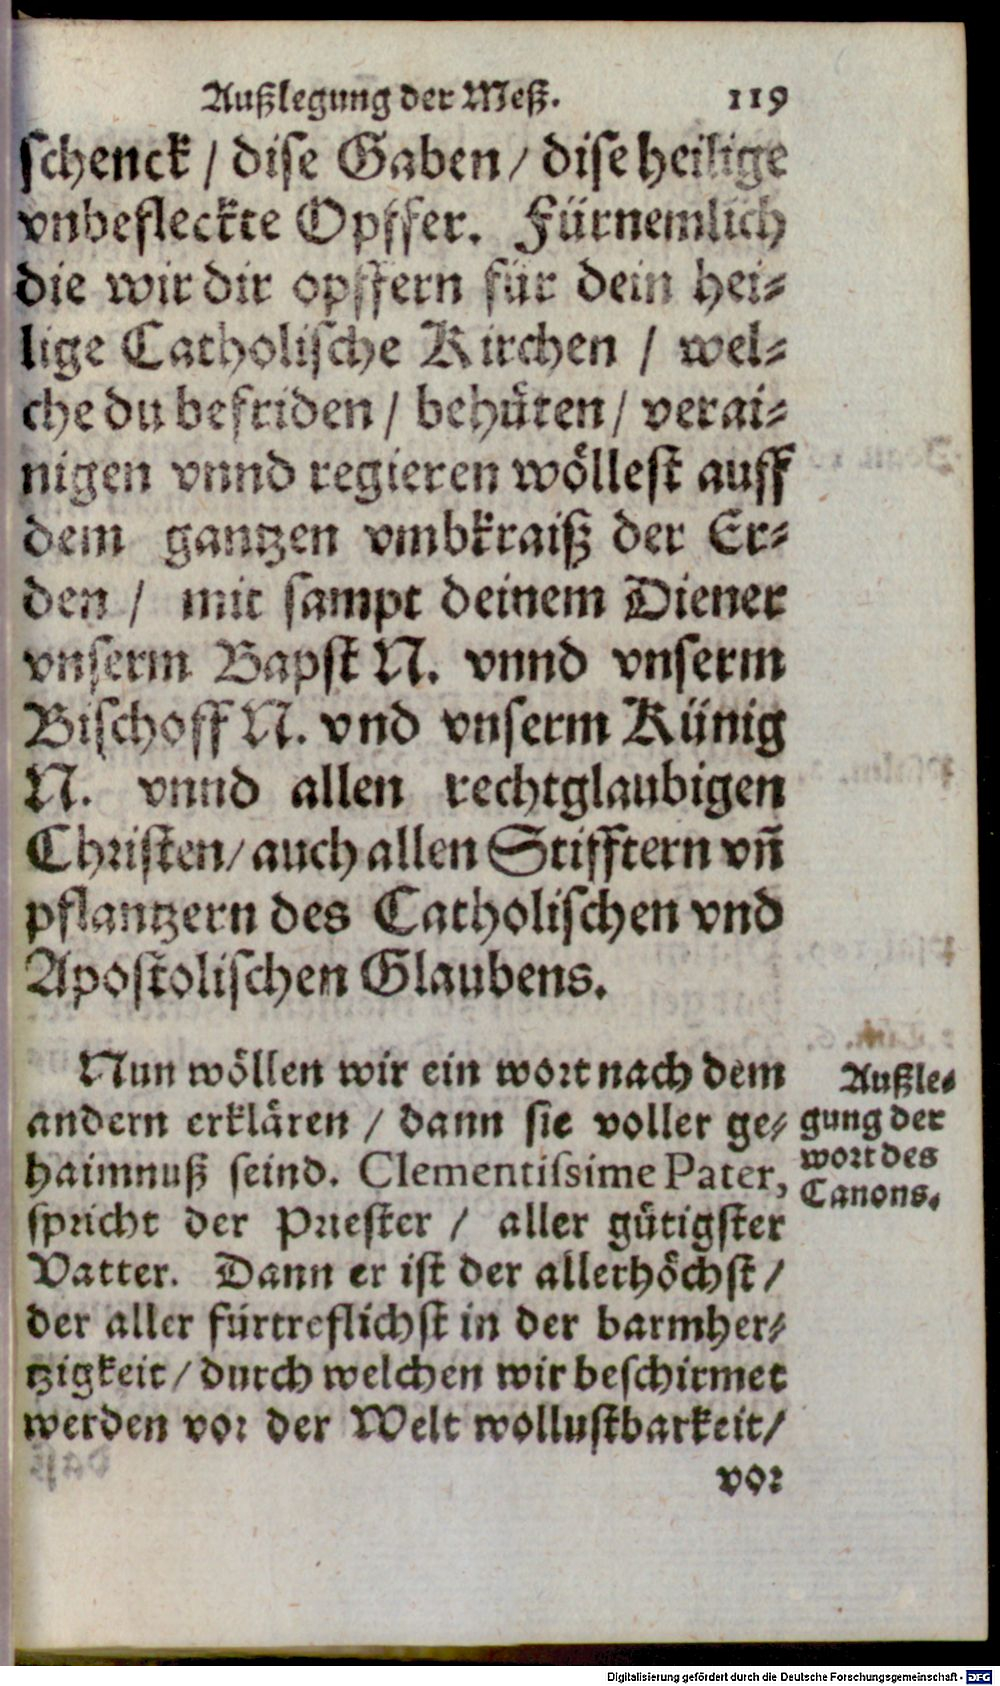 Außlegung der Meß. 119
schenck / dise Gaben / dise heilige
vnbefleckte Opffer. Fürnemlich
die wir dir opffern für dein hei⸗
lige Catholische Kirchen / wel⸗
che du befriden / behüten / verai⸗
nigen vnnd regieren wöllest auff
dem gantzen vmbkraiß der Er⸗
den / mit sampt deinem Diener
vnserm Bapst N. vnnd vnserm
Bischoff N. vnd vnserm Künig
N. vnnd allen rechtglaubigen
Christen / auch allen Stifftern vñ
pflantzern des Catholischen vnd
Apostolischen Glaubens.
Nun wöllen wir ein wort nach dem
andern erklären / dann sie voller ge⸗
haimnuß seind. Clementissime Pater,
spricht der Priester / aller gütigster
Vatter. Dann er ist der allerhöchst /
der aller fürtreflichst in der barmher⸗
tzigkeit / durch welchen wir beschirmet
werden vor der Welt wollustbarkeit /
vor
Außle⸗
gung der
wort des
Canons.
Digitalisierung gefördert durch die Deutsche Forschungsgemeinschaft - DFG